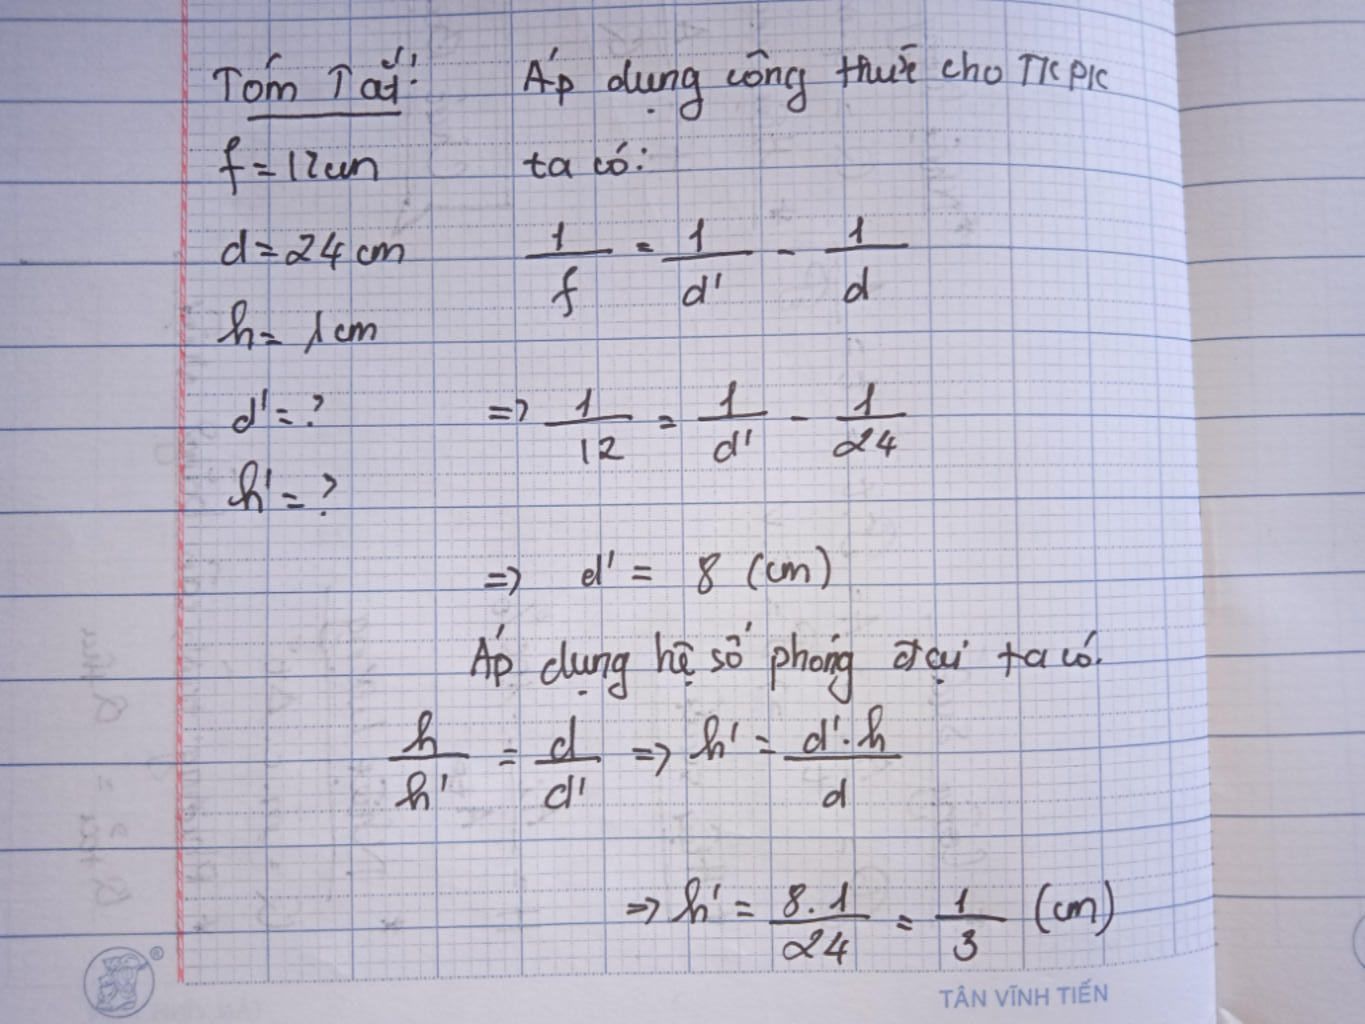 Tóm Tắt:
f = 12cm
d = 24 cm
h = 1 cm
d' = ?
h' = ?
Áp dụng công thức cho TKPK
ta có:
1/f = 1/d' - 1/d
=> 1/12 = 1/d' - 1/24
=> d' = 8 (cm)
Áp dụng hệ số phóng đại ta có.
h/h' = d/d' => h' = d'.h/d
=> h' = 8.1/24 = 1/3 (cm)
TÂN VĨNH TIẾN